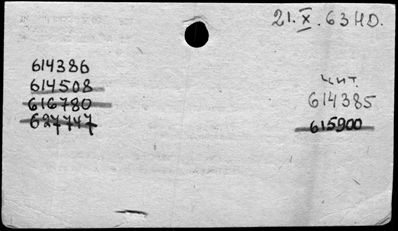 21.X.63 НО.
614386
614508
616780
627747
чит.
614385
615900